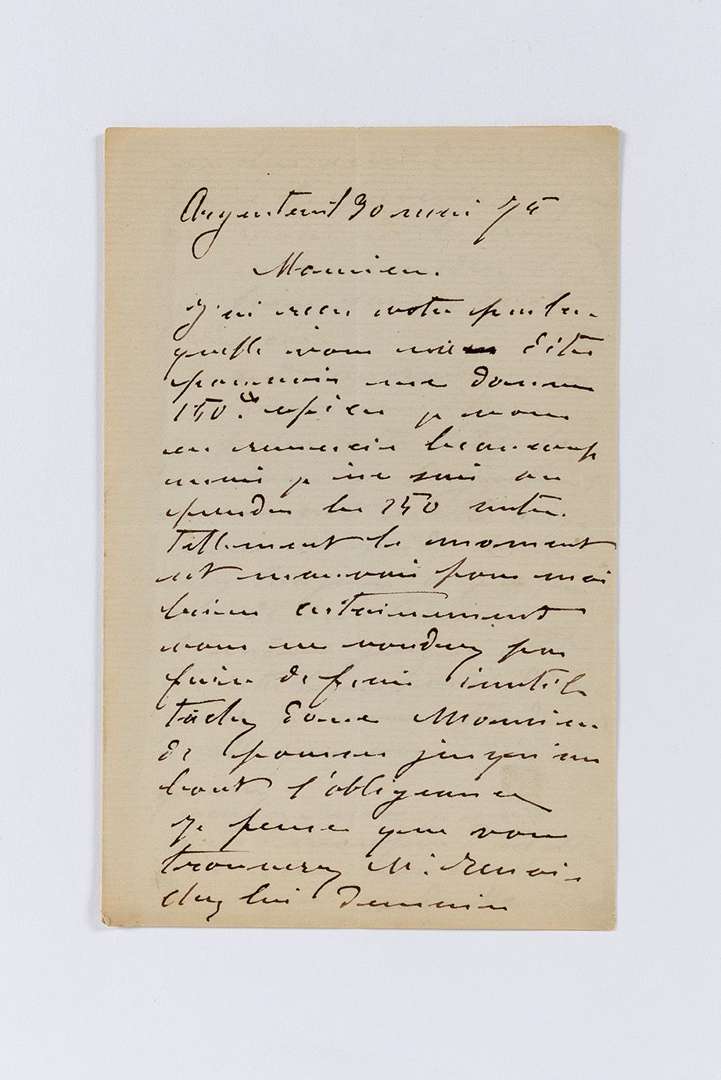 Argenteuil 30 mai 75
Monsieur.
J'ai reçu votre par la-
quelle vous me dites
pouvoir me donner
150.f je vous
en remercie beaucoup
mais je ne sais où
prendre les 250 autres.
tellement le moment
est mauvais pour moi
bien certainement
vous ne voudrez pas
faire de frais inutiles
tachez donc Monsieur
de pousser jusqu'au
bout l'obligeance
Je pense que vous
trouverez M. Renoir
chez lui demain